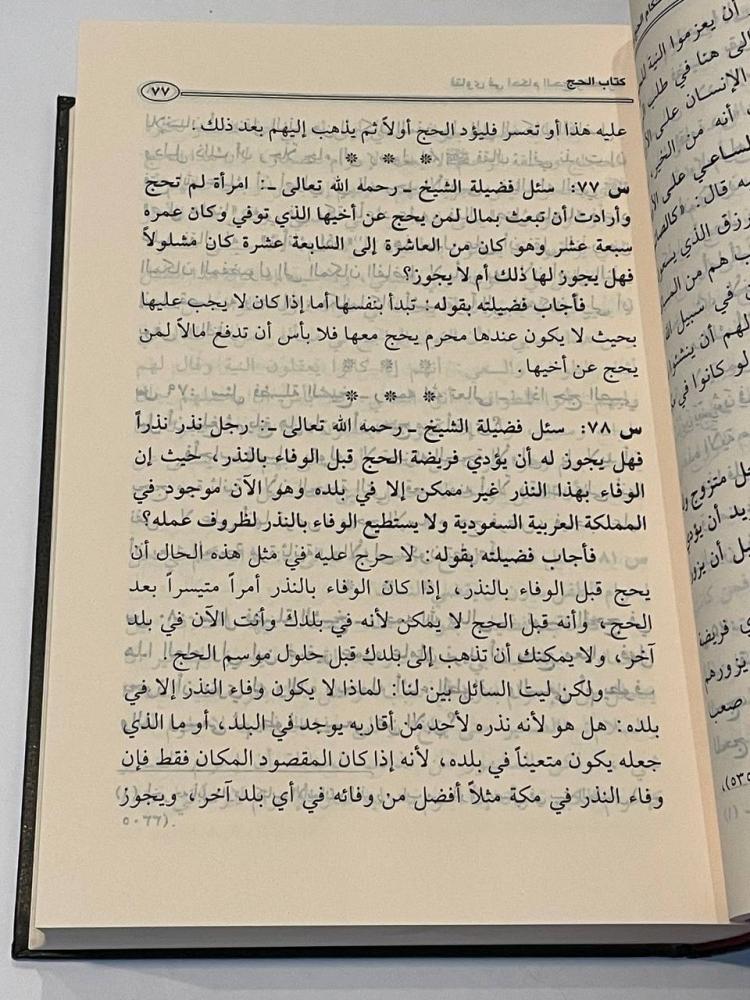 كتاب الحج
٧٧
عليه هذا أو تعسر فليؤد الحج أولاً ثم يذهب إليهم بعد ذلك.
* * *
س ٧٧: سئل فضيلة الشيخ ـ رحمه الله تعالى ـ: امرأة لم تحج
وأرادت أن تبعث بمال لمن يحج عن أخيها الذي توفي وكان عمره
سبعة عشر وهو كان من العاشرة إلى السابعة عشرة كان مشلولاً
فهل يجوز لها ذلك أم لا يجوز؟
فأجاب فضيلته بقوله: تبدأ بنفسها أما إذا كان لا يجب عليها
بحيث لا يكون عندها محرم يحج معها فلا بأس أن تدفع مالاً لمن
يحج عن أخيها.
* * *
س ٧٨: سئل فضيلة الشيخ ـ رحمه الله تعالى ـ: رجل نذر نذراً
فهل يجوز له أن يؤدي فريضة الحج قبل الوفاء بالنذر، حيث إن
الوفاء بهذا النذر غير ممكن إلا في بلده وهو الآن موجود في
المملكة العربية السعودية ولا يستطيع الوفاء بالنذر لظروف عمله؟
فأجاب فضيلته بقوله: لا حرج عليه في مثل هذه الحال أن
يحج قبل الوفاء بالنذر، إذا كان الوفاء بالنذر أمراً متيسراً بعد
الحج، وأنه قبل الحج لا يمكن لأنه في بلدك وأنت الآن في بلد
آخر، ولا يمكنك أن تذهب إلى بلدك قبل حلول موسم الحج.
ولكن ليت السائل بين لنا: لماذا لا يكون وفاء النذر إلا في
بلده: هل هو لأنه نذره لأحد من أقاربه يوجد في البلد، أو ما الذي
جعله يكون متعيناً في بلده، لأنه إذا كان المقصود المكان فقط فإن
وفاء النذر في مكة مثلاً أفضل من وفائه في أي بلد آخر، ويجوز